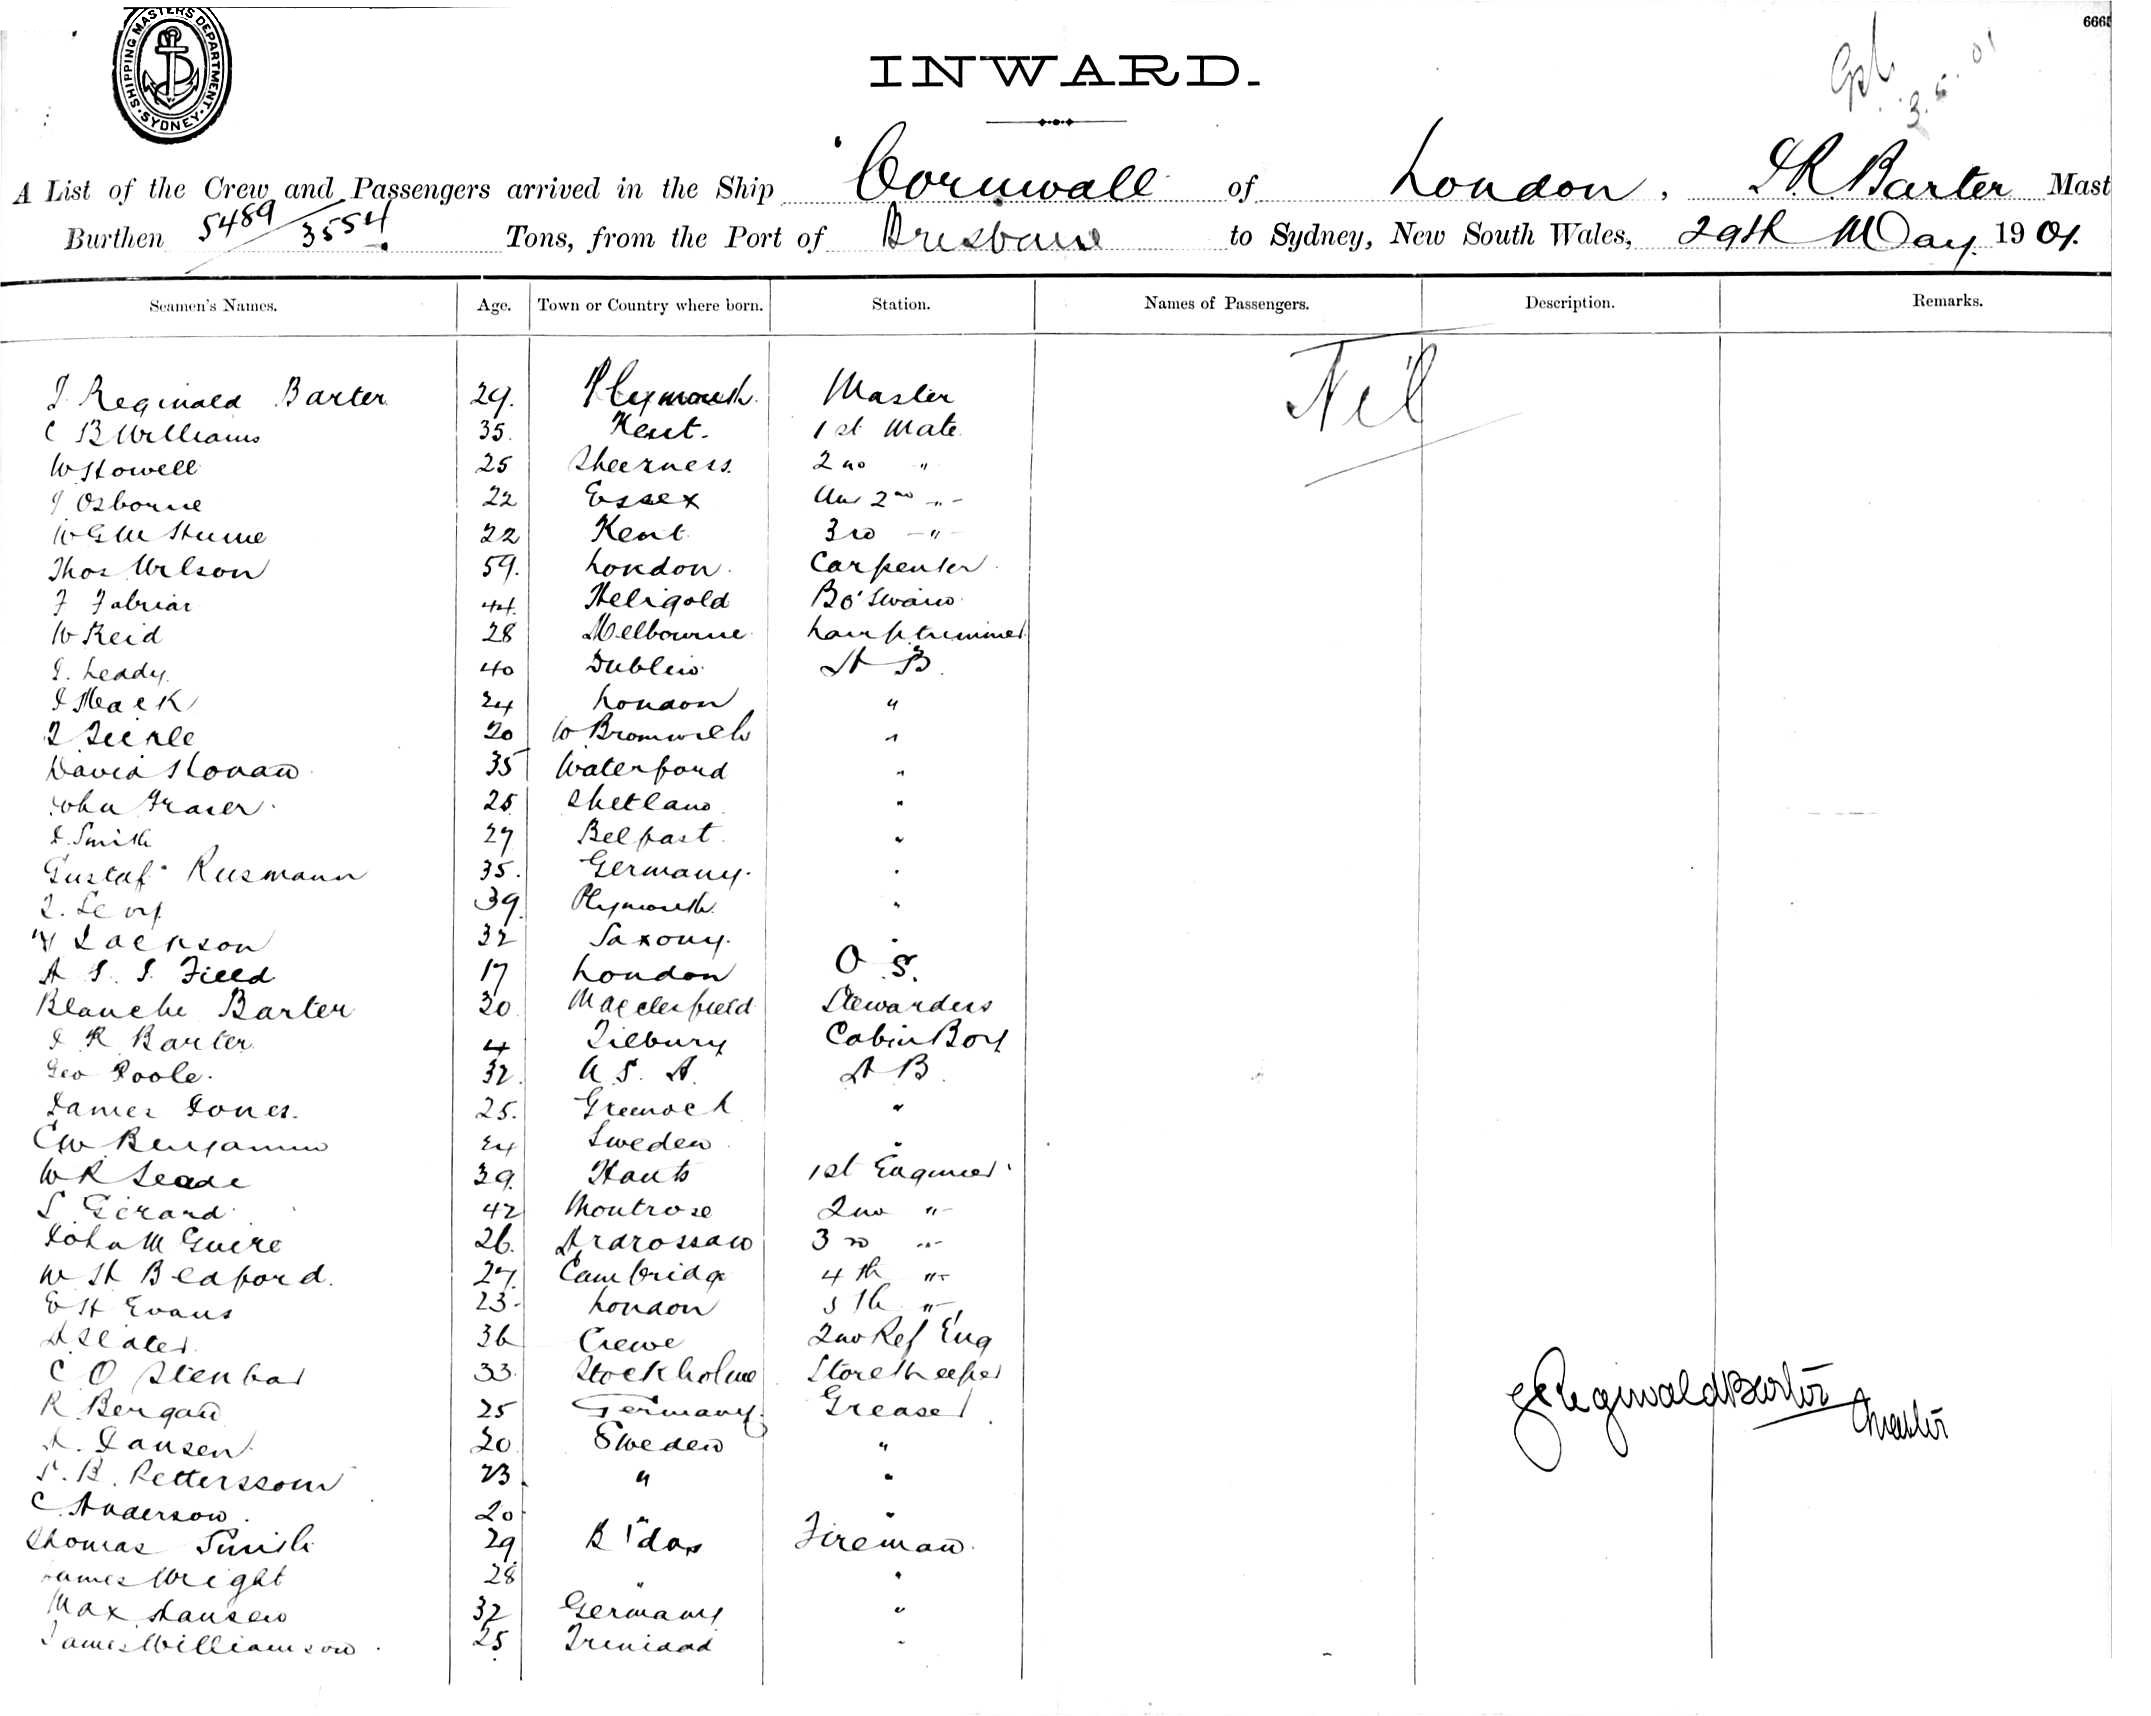 SHIPPING MASTERS DEPARTMENT · SYDNEY ·
6665
3.5.01
INWARD.
A List of the Crew and Passengers arrived in the Ship Cornwall of London, J.R. Barter Mast
Burthen 5489/3554 Tons, from the Port of Brisbane to Sydney, New South Wales, 29th May 1901.
Seamen's Names. Age. Town or Country where born. Station. Names of Passengers. Description. Remarks.
Nil
J Reginald Barter 29. Plymouth. Master
C B Williams 35. Kent. 1st Mate
W Howell 25 Sheerness. 2nd "
J Osborne 22 Essex Aux 2nd "
W G M Hume 22 Kent 3rd "
Thos Wilson 59. London. Carpenter
F Fabrian 44. Heligold Bo'swain
W Reid 28 Melbourne Lamptrimmer
J. Leddy. 40 Dublin A B.
J Mack 24 London "
20 W Bromwich "
David Honan 35 Waterford "
John Fraser. 25 Shetland "
J. Smith 27 Belfast "
Gustaf Rusmann 35. Germany. "
J. Levy 39. Plymouth. "
Jackson 32 Saxony. "
A J. J. Field 17 London O S.
Blanche Barter 30 Macclesfield Stewardess
J R Barter 4 Tilbury Cabin Boy
Geo Poole. 32. U S. A. A B
James Jones. 25. Greenock "
C W Benjamin 24 Sweden "
W R Seade 39. Hants 1st Engineer
S Gerard 42 Montrose 2nd "
John McGuire 26. Ardrossan 3rd "
W H Bedford. 27. Cambridge 4th "
E H Evans 23. London 5th "
A Slater 36 Crewe 2nd Ref Eng
C O Stenbar 33. Stockholme Storekeeper
R Bergan 25 Germany. Greaser
A. Jansen. 20 Sweden "
P. B. Petterssonn 23. " "
C Anderson. 20 " "
Thomas Smith 29 B'dos Fireman.
James Wright 28 " "
Max Hansen 32 Germany "
James Williamson 25 Trinidad "
J Reginald Barter
Master